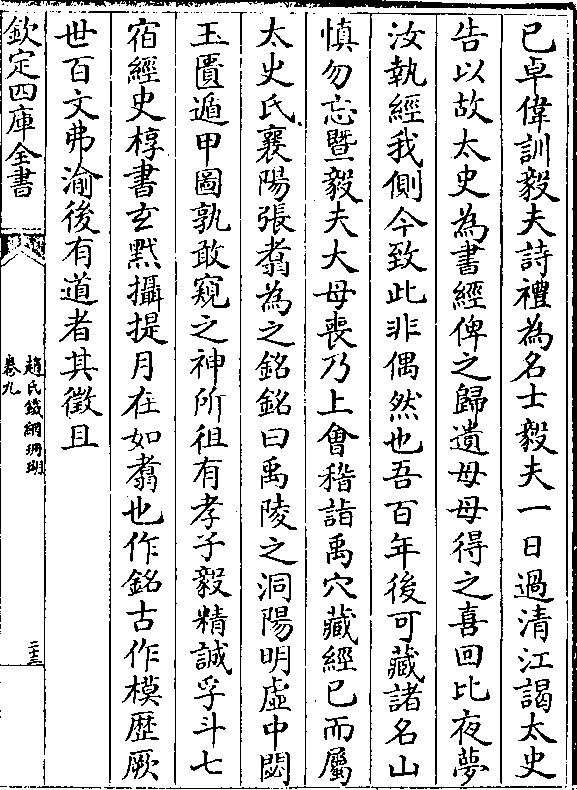 已卓偉訓毅夫詩禮為名士毅夫一日過清江謁太史
告以故太史為書經俾之歸遺母母得之喜回比夜夢
汝執經我側今致此非偶然也吾百年後可藏諸名山
慎勿忘暨毅夫大母喪乃上會稽詣禹穴藏經已而屬
太史氏襄陽張翥為之銘銘曰禹陵之洞陽明虛中閟
玉匱遁甲圖孰敢窺之神所徂有孝子毅精誠孚斗七
宿經史椁書玄黙攝提月在如翥也作銘古作模歷厥
世百文弗渝後有道者其徵且
欽定四庫全書
趙氏鐵網珊瑚
卷九
二十三